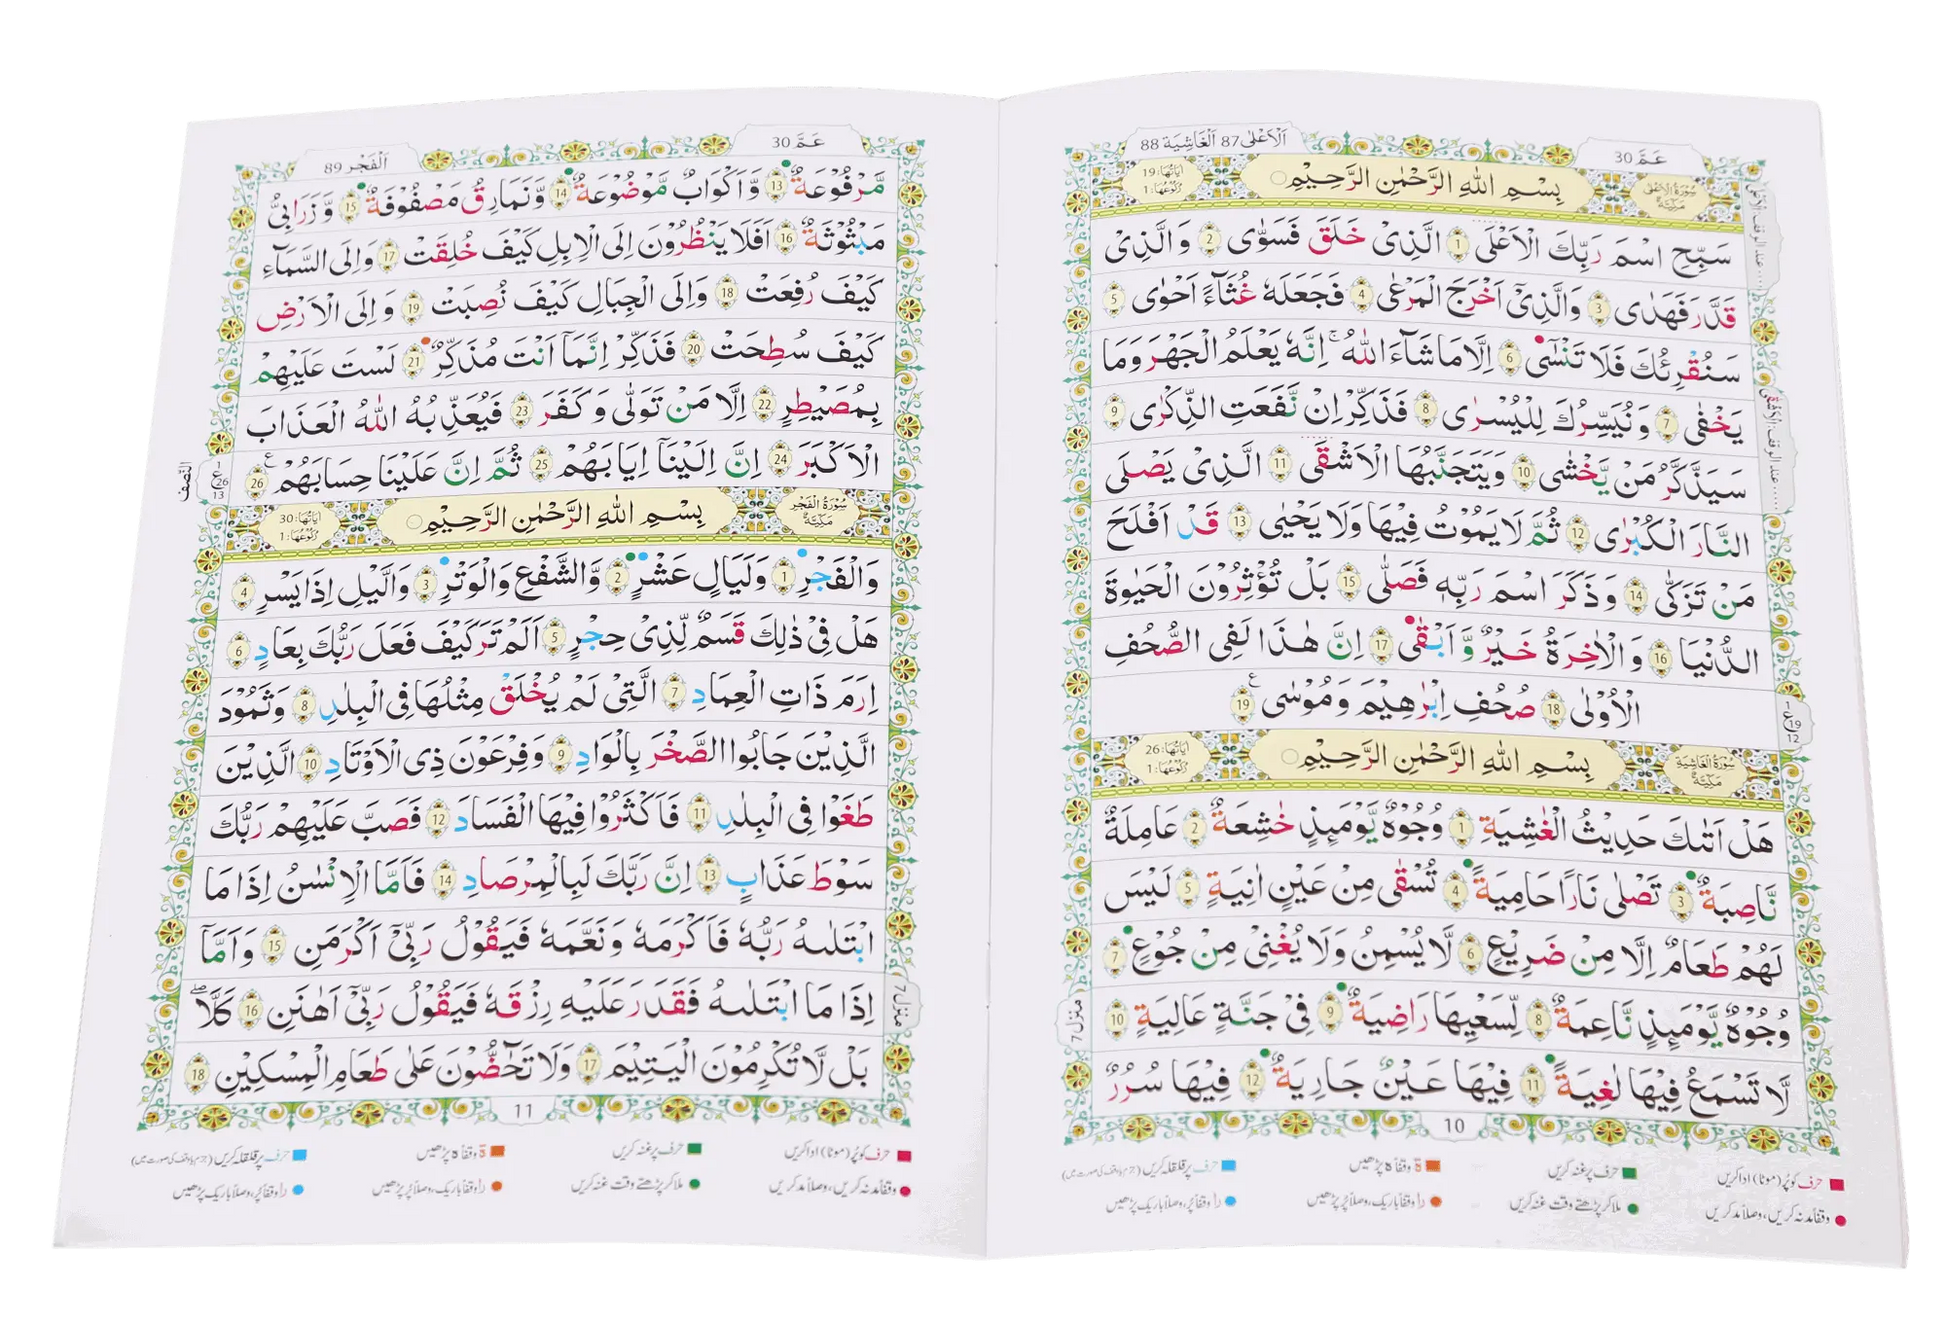 عَمَّ 30
اَلْاَعْلٰى 87 اَلْغَاشِيَة 88
سُوْرَةُ الْاَعْلٰى مَكِّيَّةٌ
بِسْمِ اللهِ الرَّحْمٰنِ الرَّحِيْمِ
اٰيَاتُهَا: 19
رُكُوْعُهَا: 1
سَبِّحِ اسْمَ رَبِّكَ الْاَعْلَى 1 الَّذِىْ خَلَقَ فَسَوّٰى 2 وَالَّذِىْ
قَدَّرَ فَهَدٰى 3 وَالَّذِىْۤ اَخْرَجَ الْمَرْعٰى 4 فَجَعَلَهٗ غُثَآءً اَحْوٰى 5
سَنُقْرِئُكَ فَلَا تَنْسٰٓى 6 اِلَّا مَا شَآءَ اللهُ ؕ اِنَّهٗ يَعْلَمُ الْجَهْرَ وَمَا
يَخْفٰى 7 وَنُيَسِّرُكَ لِلْيُسْرٰى 8 فَذَكِّرْ اِنْ نَّفَعَتِ الذِّكْرٰى 9
سَيَذَّكَّرُ مَنْ يَّخْشٰى 10 وَيَتَجَنَّبُهَا الْاَشْقَى 11 الَّذِىْ يَصْلَى
النَّارَ الْكُبْرٰى 12 ثُمَّ لَا يَمُوْتُ فِيْهَا وَلَا يَحْيٰى 13 قَدْ اَفْلَحَ
مَنْ تَزَكّٰى 14 وَذَكَرَ اسْمَ رَبِّهٖ فَصَلّٰى 15 بَلْ تُؤْثِرُوْنَ الْحَيٰوةَ
الدُّنْيَا 16 وَالْاٰخِرَةُ خَيْرٌ وَّاَبْقٰى 17 اِنَّ هٰذَا لَفِى الصُّحُفِ
الْاُوْلٰى 18 صُحُفِ اِبْرٰهِيْمَ وَمُوْسٰى 19
سُوْرَةُ الْغَاشِيَةِ مَكِّيَّةٌ
بِسْمِ اللهِ الرَّحْمٰنِ الرَّحِيْمِ
اٰيَاتُهَا: 26
رُكُوْعُهَا: 1
هَلْ اَتٰىكَ حَدِيْثُ الْغٰشِيَةِ 1 وُجُوْهٌ يَّوْمَئِذٍ خٰشِعَةٌ 2 عَامِلَةٌ
نَّاصِبَةٌ 3 تَصْلٰى نَارًا حَامِيَةً 4 تُسْقٰى مِنْ عَيْنٍ اٰنِيَةٍ 5 لَيْسَ
لَهُمْ طَعَامٌ اِلَّا مِنْ ضَرِيْعٍ 6 لَّا يُسْمِنُ وَلَا يُغْنِىْ مِنْ جُوْعٍ 7
وُجُوْهٌ يَّوْمَئِذٍ نَّاعِمَةٌ 8 لِّسَعْيِهَا رَاضِيَةٌ 9 فِىْ جَنَّةٍ عَالِيَةٍ 10
لَّا تَسْمَعُ فِيْهَا لٰغِيَةً 11 فِيْهَا عَيْنٌ جَارِيَةٌ 12 فِيْهَا سُرُرٌ
منزل 7
10
حرف کو پُر (موٹا) ادا کریں
حرف پر غنہ کریں
ة وقفاً ہ پڑھیں
حرف پر قلقلہ کریں
وقفاً مد نہ کریں، وصلاً مد کریں
ملا کر پڑھتے وقت غنہ کریں
را وقفاً باریک، وصلاً پُر پڑھیں
را وقفاً پُر، وصلاً باریک پڑھیں
عَمَّ 30
اَلْفَجْر 89
مَّرْفُوْعَةٌ 13 وَّاَكْوَابٌ مَّوْضُوْعَةٌ 14 وَّنَمَارِقُ مَصْفُوْفَةٌ 15 وَّزَرَابِىُّ
مَبْثُوْثَةٌ 16 اَفَلَا يَنْظُرُوْنَ اِلَى الْاِبِلِ كَيْفَ خُلِقَتْ 17 وَاِلَى السَّمَآءِ
كَيْفَ رُفِعَتْ 18 وَاِلَى الْجِبَالِ كَيْفَ نُصِبَتْ 19 وَاِلَى الْاَرْضِ
كَيْفَ سُطِحَتْ 20 فَذَكِّرْ اِنَّمَاۤ اَنْتَ مُذَكِّرٌ 21 لَسْتَ عَلَيْهِمْ
بِمُصَيْطِرٍ 22 اِلَّا مَنْ تَوَلّٰى وَكَفَرَ 23 فَيُعَذِّبُهُ اللهُ الْعَذَابَ
الْاَكْبَرَ 24 اِنَّ اِلَيْنَاۤ اِيَابَهُمْ 25 ثُمَّ اِنَّ عَلَيْنَا حِسَابَهُمْ 26
النصف
سُوْرَةُ الْفَجْرِ مَكِّيَّةٌ
بِسْمِ اللهِ الرَّحْمٰنِ الرَّحِيْمِ
اٰيَاتُهَا: 30
رُكُوْعُهَا: 1
وَالْفَجْرِ 1 وَلَيَالٍ عَشْرٍ 2 وَّالشَّفْعِ وَالْوَتْرِ 3 وَالَّيْلِ اِذَا يَسْرِ 4
هَلْ فِىْ ذٰلِكَ قَسَمٌ لِّذِىْ حِجْرٍ 5 اَلَمْ تَرَ كَيْفَ فَعَلَ رَبُّكَ بِعَادٍ 6
اِرَمَ ذَاتِ الْعِمَادِ 7 الَّتِىْ لَمْ يُخْلَقْ مِثْلُهَا فِى الْبِلَادِ 8 وَثَمُوْدَ
الَّذِيْنَ جَابُوا الصَّخْرَ بِالْوَادِ 9 وَفِرْعَوْنَ ذِى الْاَوْتَادِ 10 الَّذِيْنَ
طَغَوْا فِى الْبِلَادِ 11 فَاَكْثَرُوْا فِيْهَا الْفَسَادَ 12 فَصَبَّ عَلَيْهِمْ رَبُّكَ
سَوْطَ عَذَابٍ 13 اِنَّ رَبَّكَ لَبِالْمِرْصَادِ 14 فَاَمَّا الْاِنْسَانُ اِذَا مَا
ابْتَلٰىهُ رَبُّهٗ فَاَكْرَمَهٗ وَنَعَّمَهٗ فَيَقُوْلُ رَبِّىْۤ اَكْرَمَنِ 15 وَاَمَّاۤ
اِذَا مَا ابْتَلٰىهُ فَقَدَرَ عَلَيْهِ رِزْقَهٗ فَيَقُوْلُ رَبِّىْۤ اَهَانَنِ 16 كَلَّا
بَلْ لَّا تُكْرِمُوْنَ الْيَتِيْمَ 17 وَلَا تَحٰٓضُّوْنَ عَلٰى طَعَامِ الْمِسْكِيْنِ 18
منزل 7
11
حرف کو پُر (موٹا) ادا کریں
حرف پر غنہ کریں
ة وقفاً ہ پڑھیں
حرف پر قلقلہ کریں
وقفاً مد نہ کریں، وصلاً مد کریں
ملا کر پڑھتے وقت غنہ کریں
را وقفاً باریک، وصلاً پُر پڑھیں
را وقفاً پُر، وصلاً باریک پڑھیں